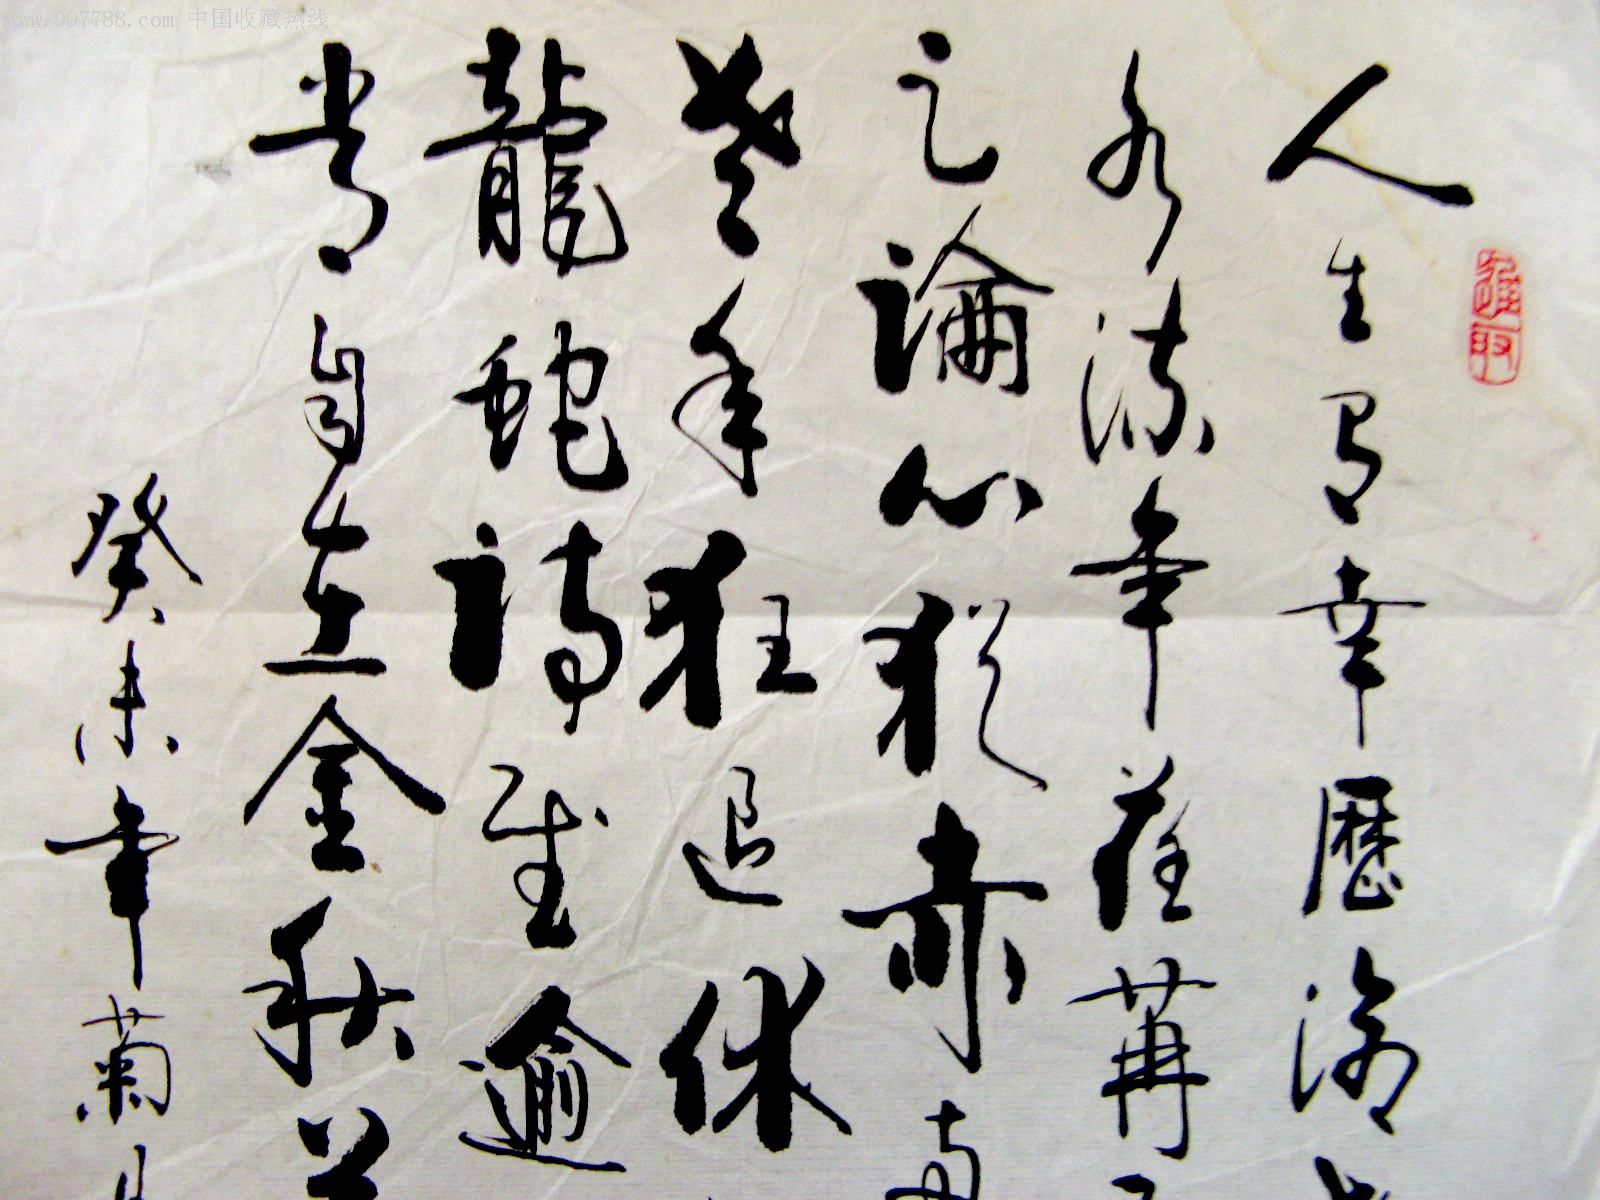 www.997788.com 中国收藏热线
進取
人生有幸歷滄
水流年荏苒
之論心猶赤
老年狂退休
龍蛇詩逾
常自在金秋
癸未年菊月